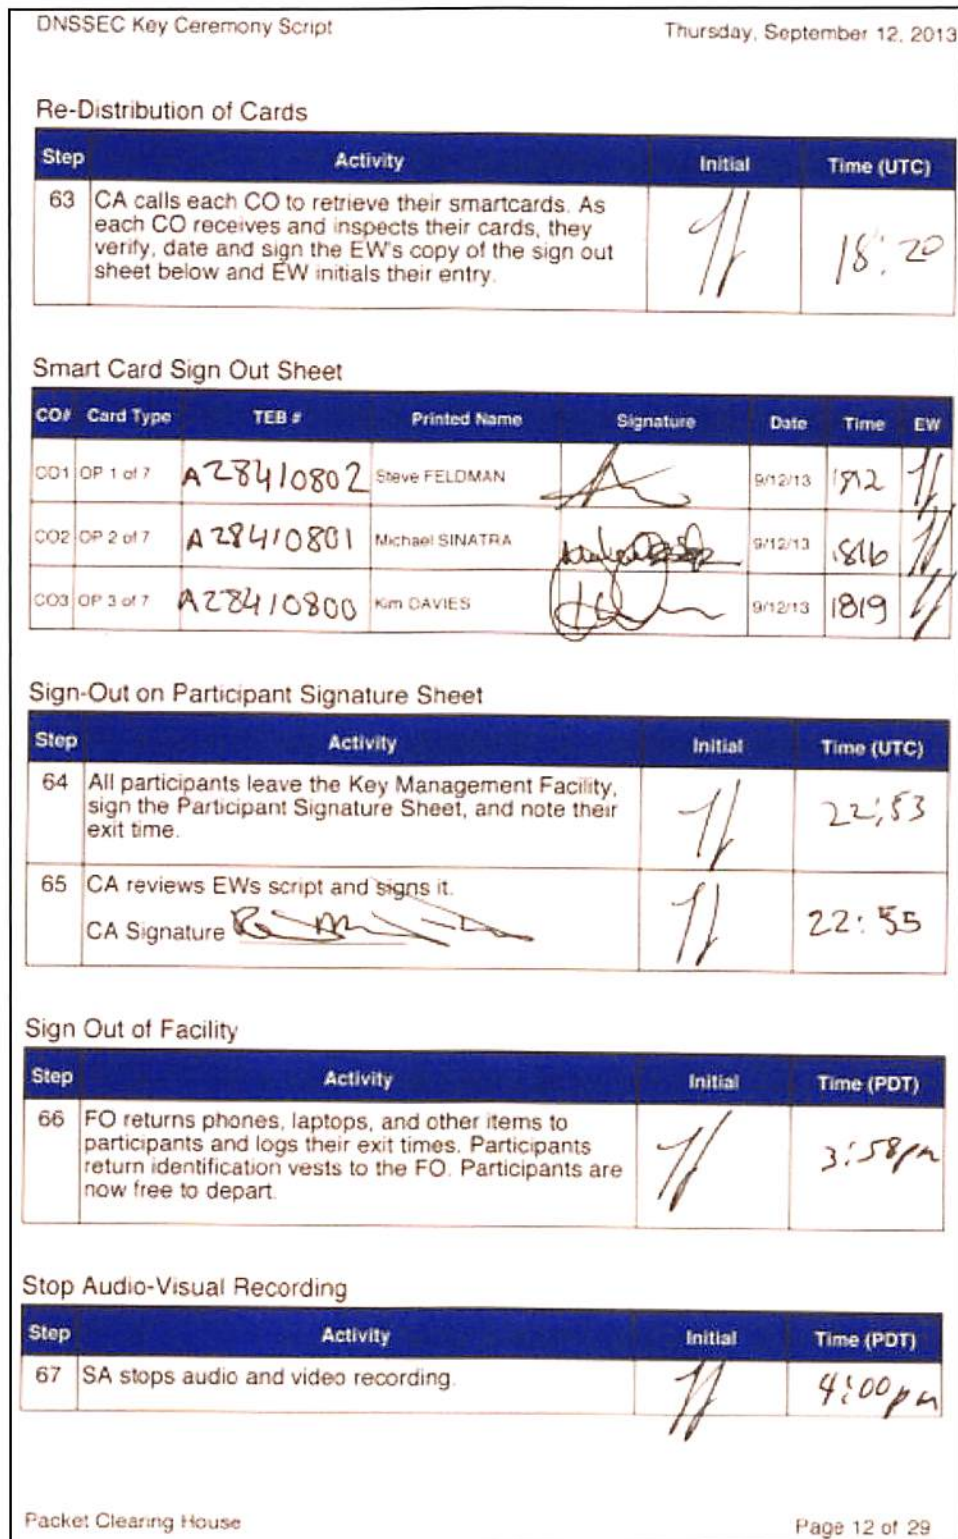 DNSSEC Key Ceremony Script
Thursday, September 12, 2013
Re-Distribution of Cards
Step Activity Initial Time (UTC)
63 CA calls each CO to retrieve their smartcards. As
each CO receives and inspects their cards, they
verify, date and sign the EW's copy of the sign out
sheet below and EW initials their entry.
18:20
Smart Card Sign Out Sheet
CO# Card Type TEB # Printed Name Signature Date Time EW
CO1 OP 1 of 7 A28410802 Steve FELDMAN 9/12/13 1812
CO2 OP 2 of 7 A28410801 Michael SINATRA 9/12/13 1816
CO3 OP 3 of 7 A28410800 Kim DAVIES 9/12/13 1819
Sign-Out on Participant Signature Sheet
Step Activity Initial Time (UTC)
64 All participants leave the Key Management Facility,
sign the Participant Signature Sheet, and note their
exit time.
22:53
65 CA reviews EWs script and signs it.
CA Signature
22:55
Sign Out of Facility
Step Activity Initial Time (PDT)
66 FO returns phones, laptops, and other items to
participants and logs their exit times. Participants
return identification vests to the FO. Participants are
now free to depart.
3:58pm
Stop Audio-Visual Recording
Step Activity Initial Time (PDT)
67 SA stops audio and video recording.
4:00pm
Packet Clearing House
Page 12 of 29